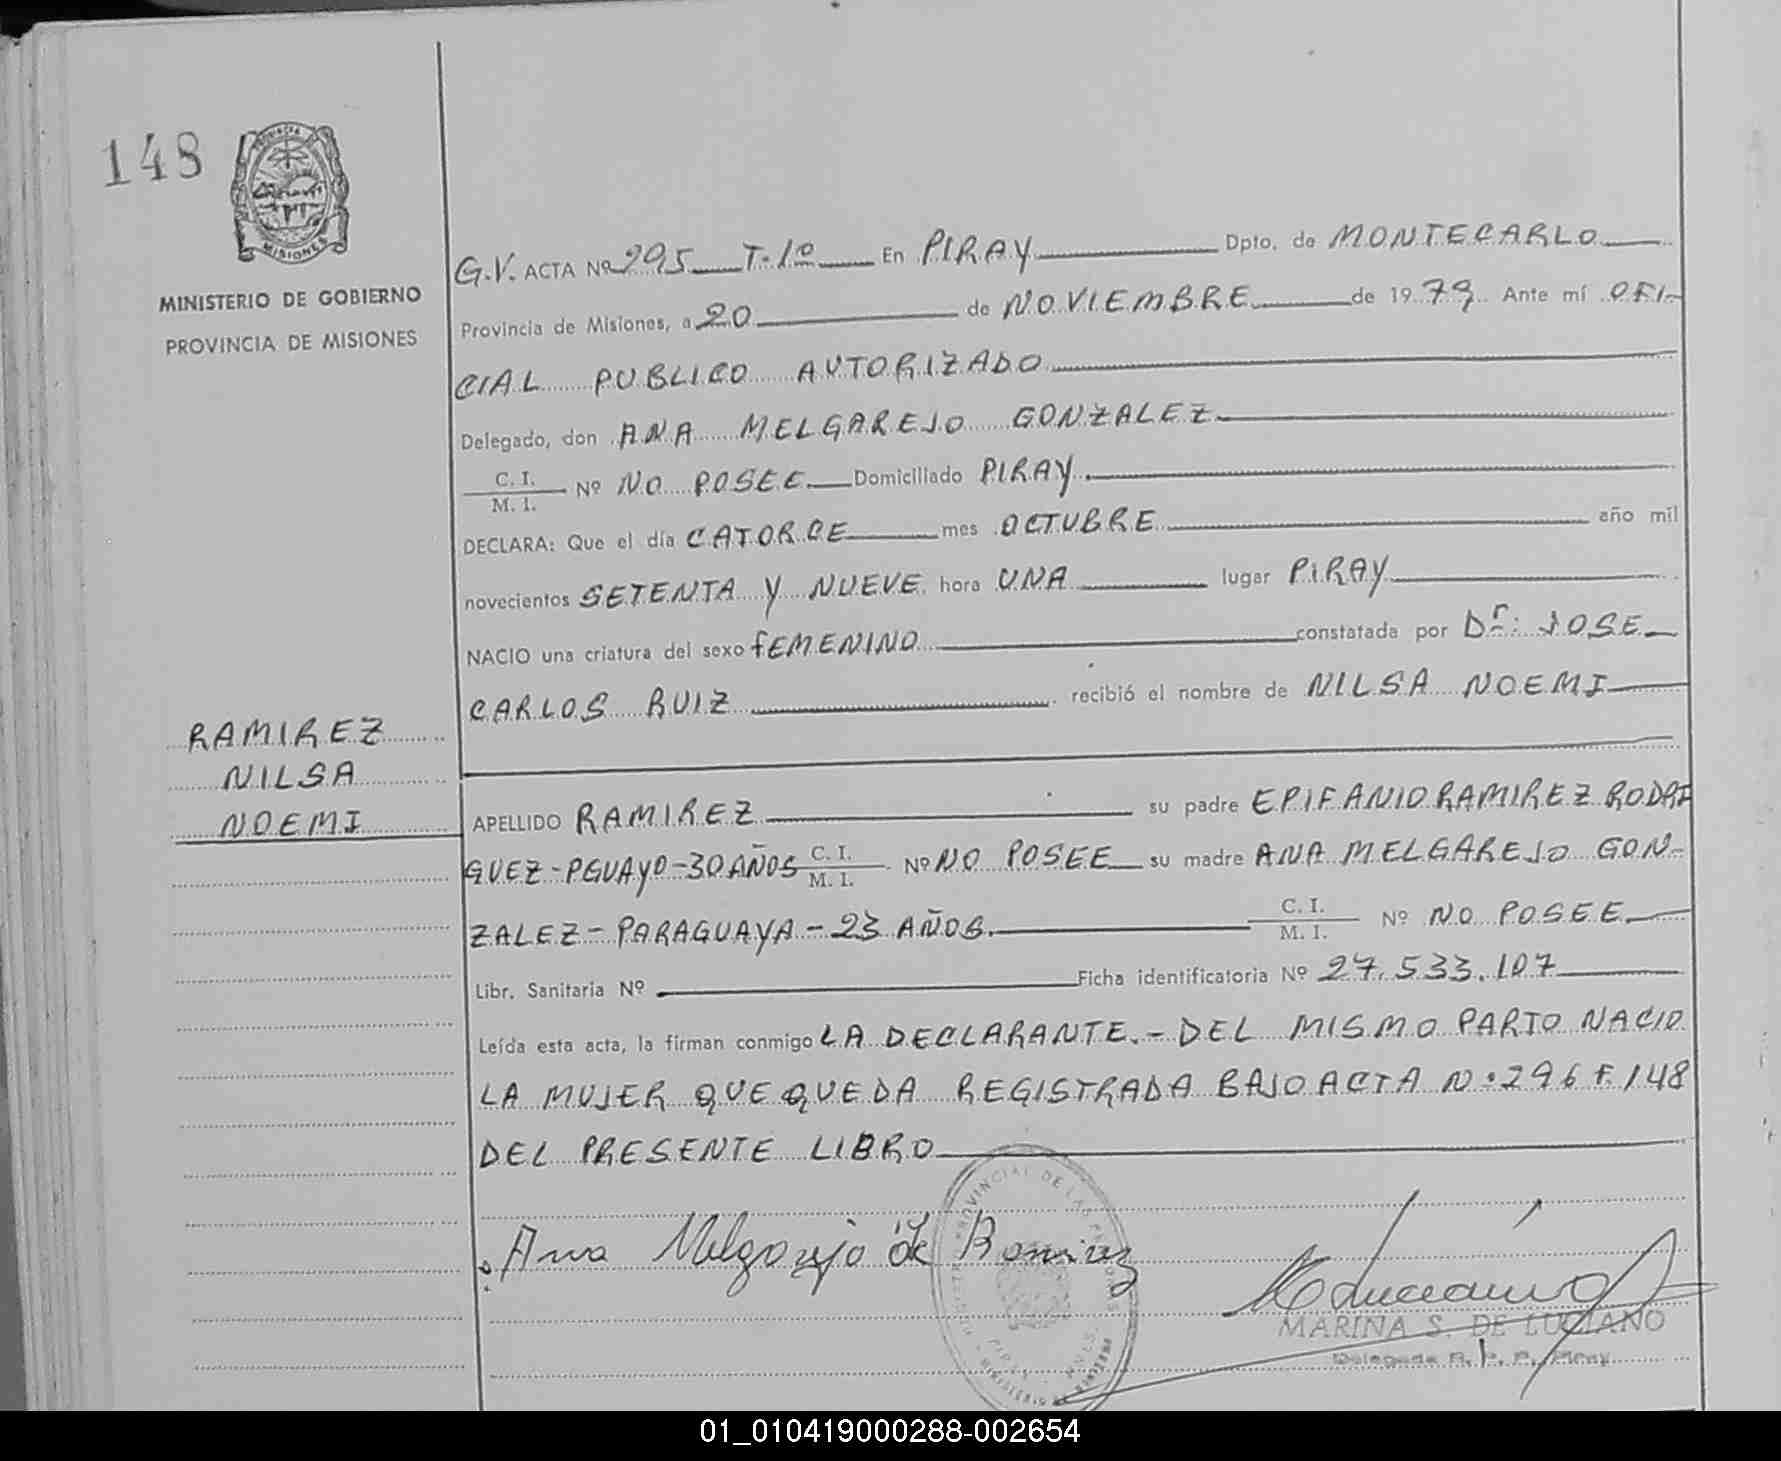 148
PROVINCIA
MISIONES
MINISTERIO DE GOBIERNO
PROVINCIA DE MISIONES
G.V. ACTA Nº 295 T-1º En PIRAY Dpto. de MONTECARLO
Provincia de Misiones, a 20 de NOVIEMBRE de 1979 Ante mí OFI-
CIAL PUBLICO AUTORIZADO
Delegado, don ANA MELGAREJO GONZALEZ
C. I.
M. I. Nº NO POSEE Domiciliado PIRAY
DECLARA: Que el día CATORCE mes OCTUBRE año mil
novecientos SETENTA Y NUEVE hora UNA lugar PIRAY
NACIO una criatura del sexo FEMENINO constatada por Dr. JOSE
CARLOS RUIZ recibió el nombre de NILSA NOEMI
RAMIREZ
NILSA
NOEMI
APELLIDO RAMIREZ su padre EPIFANIO RAMIREZ RODRI
GUEZ-PGUAYO-30 AÑOS C. I. M. I. Nº NO POSEE su madre ANA MELGAREJO GON-
ZALEZ - PARAGUAYA - 23 AÑOS. C. I. M. I. Nº NO POSEE
Libr. Sanitaria Nº Ficha identificatoria Nº 27.533.107
Leída esta acta, la firman conmigo LA DECLARANTE.- DEL MISMO PARTO NACIO
LA MUJER QUE QUEDA REGISTRADA BAJO ACTA Nº 296 F. 148
DEL PRESENTE LIBRO
Ana Melgarejo de Ramirez
MARINA S. DE LUCIANO
Delegada R. P. P. Piray
01_010419000288-002654